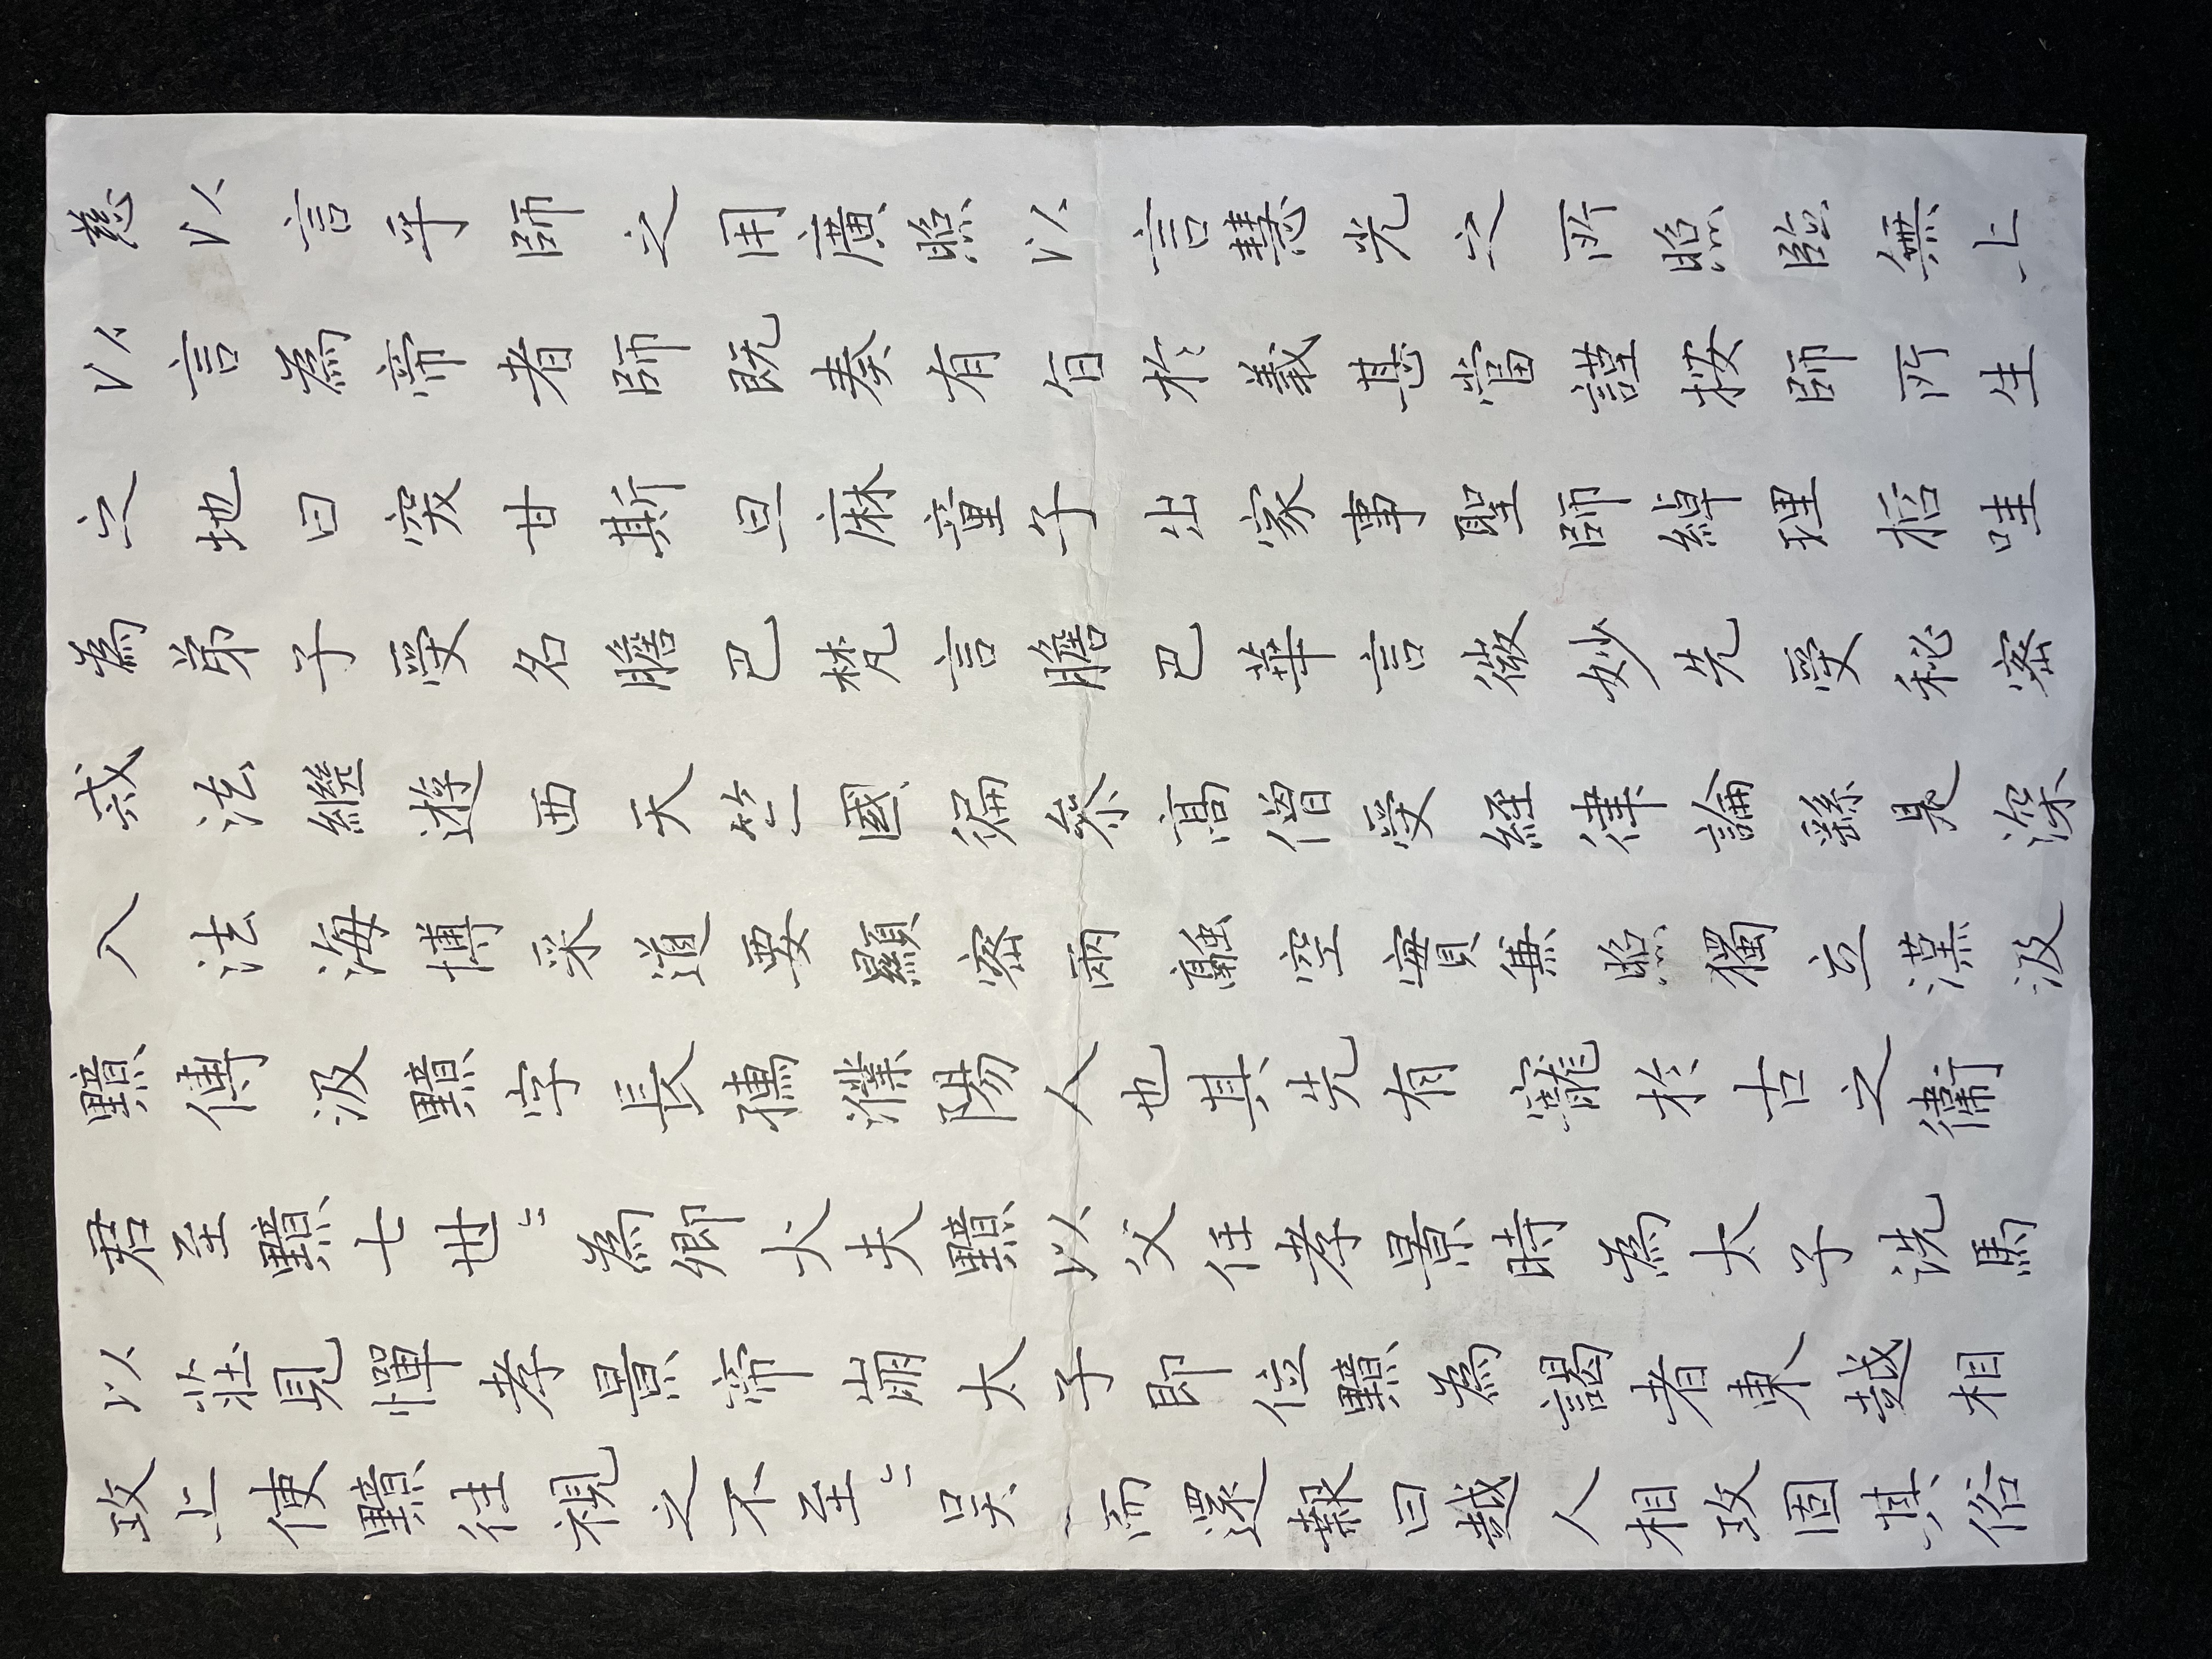 慈以言乎師之用廣照以言慧光之所照臨無上
以言為帝者師既奏有旨於義甚當謹按師所生
之地曰突甘斯旦麻童子出家事聖師綽理哲哇
為弟子受名膽巴梵言膽巴華言微妙先受秘密
戒法繼遊西天竺國徧叅高僧受經律論繇是深
入法海博采道要顯密兩融空實兼照獨立漢汲
黯傳汲黯字長孺濮陽人也其先有寵於古之衛
君至黯七世〻為卿大夫黯以父任孝景時為太子洗馬
以莊見憚孝景帝崩太子即位黯為謁者東越相
攻上使黯往視之不至〻吳而還報曰越人相攻固其俗